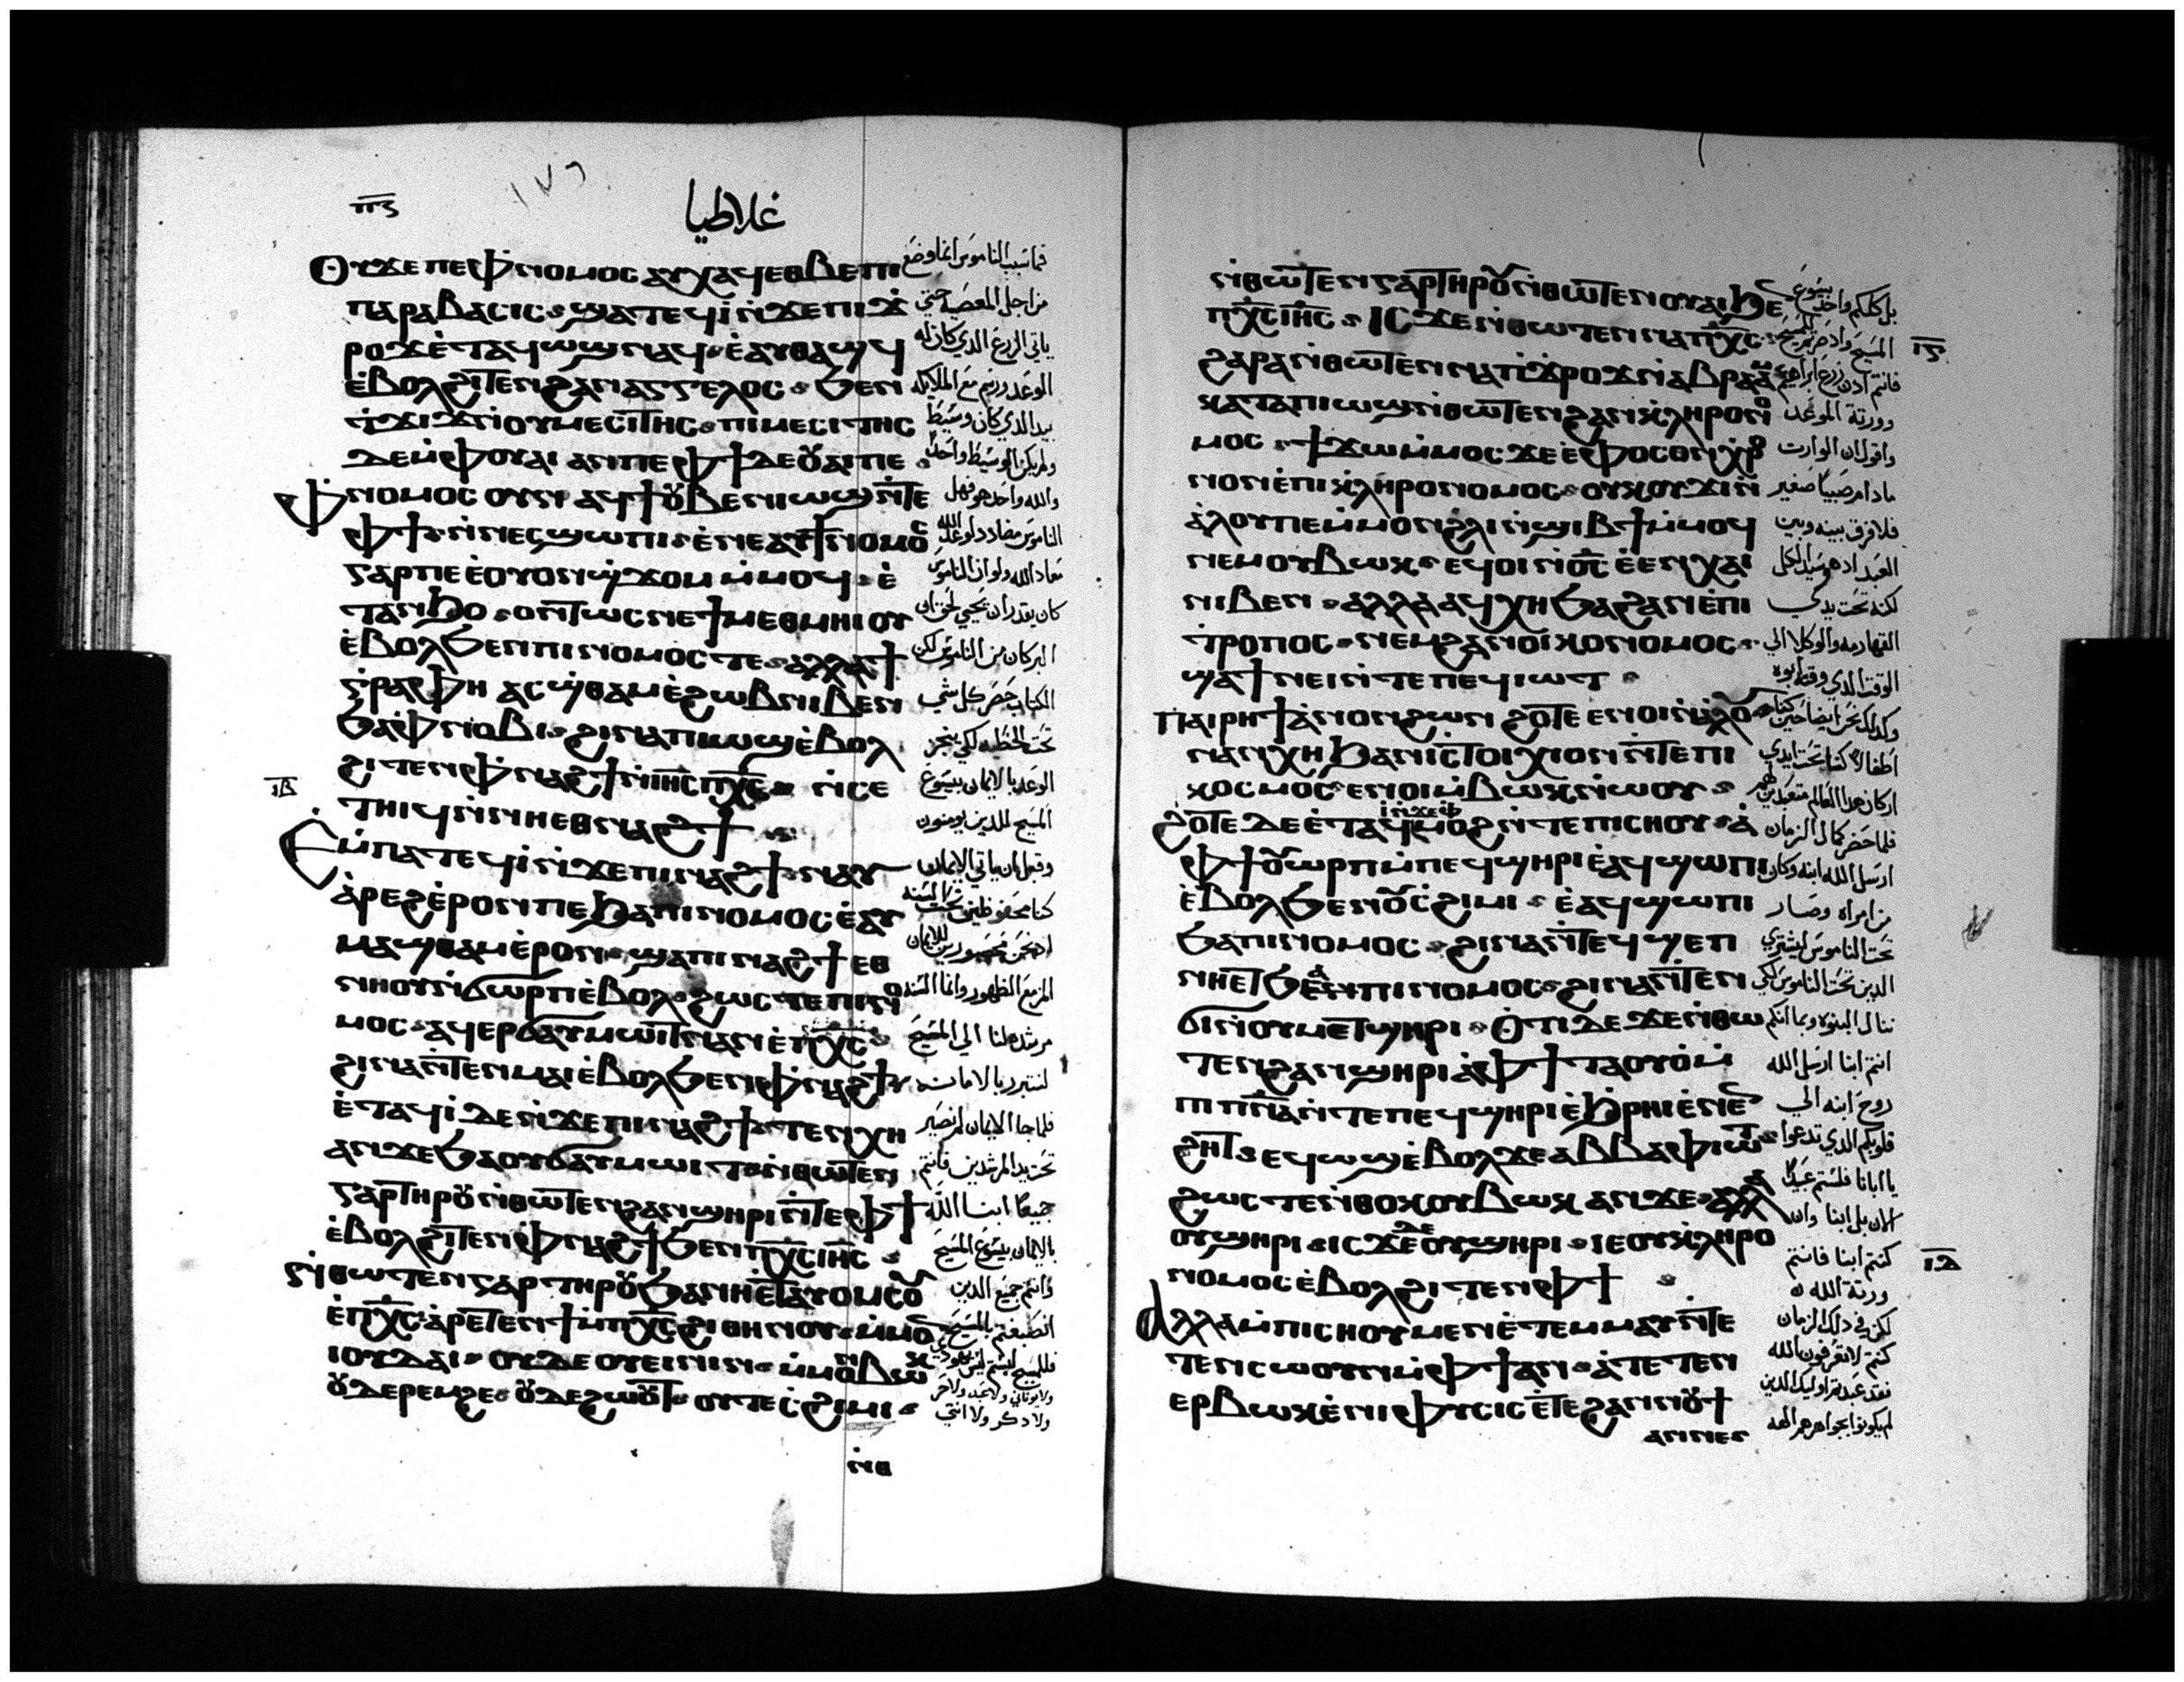 ⲡⲋ
١٧٦
غلاطيا
ⲟⲩϫⲉ ⲡⲉ ⲫⲛⲟⲙⲟⲥ ⲁⲩⲭⲁϥ ⲉⲑⲃⲉ ⲡⲓ
ⲡⲁⲣⲁⲃⲁⲥⲓⲥ ϣⲁⲧⲉϥⲓ̀ ⲛ̀ϫⲉ ⲡⲓϫ
ⲣⲟϫ ⲉ̀ⲧⲁϥⲱϣ ⲛⲁϥ ⲉ̀ⲁⲩⲑⲁϣϥ
ⲉ̀ⲃⲟⲗϩⲓⲧⲉⲛ ϩⲁⲛⲁⲅⲅⲉⲗⲟⲥ ϧⲉⲛ
ⲧ̀ϫⲓϫ ⲛ̀ⲟⲩⲙⲉⲥⲓⲧⲏⲥ ⲡⲓⲙⲉⲥⲓⲧⲏⲥ
ⲇⲉ ⲙ̀ⲫⲟⲩⲁⲓ ⲁⲛ ⲡⲉ ⲫϯ ⲇⲉ ⲟⲩⲁⲓ ⲡⲉ
ⲫⲛⲟⲙⲟⲥ ⲟⲩⲛ ⲁϥϯ ⲟⲩⲃⲉ ⲛⲓⲱϣ ⲛ̀ⲧⲉ
ⲫϯ ⲛ̀ⲛⲉⲥϣⲱⲡⲓ ⲉ̀ⲛⲉⲁⲩϯ ⲛⲟⲙⲟⲥ
ⲅⲁⲣ ⲡⲉ ⲉ̀ⲟⲩⲟⲛϣϫⲟⲙ ⲙ̀ⲙⲟϥ ⲉ̀
ⲧⲁⲛϧⲟ ⲟⲛⲧⲱⲥ ⲛⲉ ϯⲙⲉⲑⲙⲏⲓ ⲟⲩ
ⲉ̀ⲃⲟⲗϧⲉⲛ ⲡⲓⲛⲟⲙⲟⲥ ⲧⲉ ⲁⲗⲗⲁ ϯ
ⲅⲣⲁⲫⲏ ⲁⲥϣⲑⲁⲙ ⲉ̀ϩⲱⲃ ⲛⲓⲃⲉⲛ
ϧⲁ ⲫⲛⲟⲃⲓ ϩⲓⲛⲁ ⲡⲓⲱϣ ⲉ̀ⲃⲟⲗ
ϩⲓⲧⲉⲛ ⲫⲛⲁϩϯ ⲛ̀ⲓⲏⲥ ⲡⲭⲥ ⲛ̀ⲥⲉ
ⲓⲃ
ⲧⲏⲓϥ ⲛ̀ⲛⲏⲉⲑⲛⲁϩϯ
ⲉⲙⲡⲁⲧⲉϥⲓ̀ ⲛ̀ϫⲉ ⲡⲓⲛⲁϩϯ ⲛⲁⲩ
ⲁ̀ⲣⲉϩ ⲉ̀ⲣⲟⲛ ⲡⲉ ϧⲁ ⲡⲓⲛⲟⲙⲟⲥ ⲉ̀ⲁⲩ
ⲙⲁϣⲑⲁⲙ ⲉ̀ⲣⲟⲛ ϣⲁ ⲡⲓⲛⲁϩϯ ⲉⲑ
ⲛⲏⲟⲩ ⲛ̀ϭⲱⲣⲡ ⲉ̀ⲃⲟⲗ ϩⲱⲥⲧⲉ ⲡⲓⲛⲟ
ⲙⲟⲥ ⲁϥⲉⲣϭⲁⲩⲙⲱⲓⲧ ⲛⲁⲛ ⲉ̀ⲡⲭⲥ
ϩⲓⲛⲁ ⲛ̀ⲧⲉⲛⲙⲁⲓ ⲉ̀ⲃⲟⲗϧⲉⲛ ⲫⲛⲁϩϯ
ⲉ̀ⲧⲁϥⲓ̀ ⲇⲉ ⲛ̀ϫⲉ ⲡⲓⲛⲁϩϯ ⲧⲉⲛⲭⲏ
ⲁⲛ ϫⲉ ϧⲁ ⲟⲩϭⲁⲩⲙⲱⲓⲧ ⲛ̀ⲑⲱⲧⲉⲛ
ⲅⲁⲣ ⲧⲏⲣⲟⲩ ⲛ̀ⲑⲱⲧⲉⲛ ϩⲁⲛϣⲏⲣⲓ ⲛ̀ⲧⲉ ⲫϯ
ⲉ̀ⲃⲟⲗϩⲓⲧⲉⲛ ⲫⲛⲁϩϯ ϧⲉⲛ ⲡⲭⲥ ⲓⲏⲥ
ⲛ̀ⲑⲱⲧⲉⲛ ⲅⲁⲣ ⲧⲏⲣⲟⲩ ϧⲁ ⲛⲏⲉⲧⲁⲩⲟⲙⲥⲟⲩ
ⲉ̀ⲡⲭⲥ ⲁ̀ⲣⲉⲧⲉⲛϯ ⲙ̀ⲡⲭⲥ ϩⲓⲑⲏⲛⲟⲩ ⲙ̀ⲙⲟⲛ
ⲓⲟⲩⲇⲁⲓ ⲟⲩⲇⲉ ⲟⲩⲉⲓⲛⲓⲛ ⲙ̀ⲙⲟⲛ ⲃⲱⲕ
ⲟⲩⲇⲉ ⲣⲉⲙϩⲉ ⲟⲩⲇⲉ ϩⲱⲟⲩⲧ ⲟⲩⲧⲉ ⲥ̀ϩⲓⲙⲓ
ⲛ̀ⲑ
فما سبب الناموس انما وضع
من اجل المعصية حتي
ياتي الزرع الذي كان له
الوعد ورسم مع الملايكه
بيد الذي كان وسيطا
ولم يكن الوسيط واحدا
والله واحد هو فهل
الناموس مضادد لوعد الله
معاذ الله ولو ان الناموس
كان يقدر ان يحيي لحق ان
البر كان من الناموس لكن
الكتاب حصر كل شي
تحت الخطيه لكي ينجز
الوعد بالايمان بيسوع
المسيح للذين يومنون
وقبل ان ياتي الايمان
كنا محفوظين تحت السنه
المزمع الظهور وانما السنه
مرشده لنا الي المسيح
لنتبرر بالامانه
فلما جا الايمان لم نصير
تحت يد المرشدين فانتم
جميعا ابنا الله
بالايمان بيسوع المسيح
وانتم جميع الذين
انصبغتم بالمسيح
ولا ذكر ولا انثي
ⲛ̀ⲑⲱⲧⲉⲛ ⲅⲁⲣ ⲧⲏⲣⲟⲩ ⲛ̀ⲑⲱⲧⲉⲛ ⲟⲩⲁⲓ ϧⲉⲛ
ⲡⲭⲥ ⲓⲏⲥ ⲓⲥϫⲉ ⲛ̀ⲑⲱⲧⲉⲛ ⲛⲁ ⲡⲭⲥ
ⲓⲅ
ϩⲁⲣⲁ ⲛ̀ⲑⲱⲧⲉⲛ ⲛⲁ ⲡ̀ϫⲣⲟϫ ⲛ̀ⲁⲃⲣⲁⲁⲙ
ⲕⲁⲧⲁ ⲡⲓⲱϣ ⲛ̀ⲑⲱⲧⲉⲛ ϩⲁⲛⲕⲗⲏⲣⲟⲛⲟ
ⲙⲟⲥ ϯϫⲱ ⲙ̀ⲙⲟⲥ ϫⲉ ⲉ̀ⲫⲟⲥⲟⲛ ⲭⲣⲟ
ⲛⲟⲛ ⲉ̀ ⲡⲓⲕⲗⲏⲣⲟⲛⲟⲙⲟⲥ ⲟⲩⲕⲟⲩϫⲓ ⲛ̀
ⲁ̀ⲗⲟⲩ ⲡⲉ ⲙ̀ⲙⲟⲛ ϩⲗⲓ ⲛ̀ϣⲓⲃϯ ⲙ̀ⲙⲟϥ
ⲛⲉⲙ ⲟⲩⲃⲱⲕ ⲉϥⲟⲓ ⲛ̀ⲟⲥ ⲉ̀ ⲉⲛⲭⲁⲓ
ⲛⲓⲃⲉⲛ ⲁⲗⲗⲁ ⲁϥⲭⲏ ϧⲁ ϩⲁⲛⲉ̀ⲡⲓ
ⲧⲣⲟⲡⲟⲥ ⲛⲉⲙ ϩⲁⲛⲟⲓⲕⲟⲛⲟⲙⲟⲥ
ϣⲁ ϯⲛⲉⲓ ⲛ̀ⲧⲉ ⲡⲉϥⲓⲱⲧ
ⲡⲁⲓⲣⲏϯ ⲁ̀ⲛⲟⲛ ϩⲱⲛ ϩⲟⲧⲉ ⲉⲛⲟⲓ ⲛ̀ⲁⲗⲟⲩ
ⲛⲁⲛⲭⲏ ϧⲁ ⲛⲓⲥⲧⲟⲓⲭⲓⲟⲛ ⲛ̀ⲧⲉ ⲡⲓ
ⲕⲟⲥⲙⲟⲥ ⲉⲛⲟⲓ ⲙ̀ⲃⲱⲕ ⲛ̀ⲱⲟⲩ
ϩⲟⲧⲉ ⲇⲉ ⲉ̀ⲧⲁϥⲙⲟϩ ⲛ̀ϫⲉ ⲡⲓⲥⲏⲟⲩ ⲁ̀
ⲫϯ ⲟⲩⲱⲣⲡ ⲙ̀ⲡⲉϥϣⲏⲣⲓ ⲉ̀ⲁϥϣⲱⲡⲓ
ⲉ̀ⲃⲟⲗϧⲉⲛ ⲟⲩⲥ̀ϩⲓⲙⲓ ⲉ̀ⲁϥϣⲱⲡⲓ
ϧⲁ ⲡⲓⲛⲟⲙⲟⲥ ϩⲓⲛⲁ ⲛ̀ⲧⲉϥϣⲉⲡ
ⲛⲏⲉⲧϧⲁ ⲡⲓⲛⲟⲙⲟⲥ ϩⲓⲛⲁ ⲛ̀ⲧⲉⲛ
ϭⲓ ⲛ̀ⲟⲩⲙⲉⲧϣⲏⲣⲓ ⲟⲧⲓ ⲇⲉ ϫⲉ ⲛ̀ⲑⲱ
ⲧⲉⲛ ϩⲁⲛϣⲏⲣⲓ ⲁ̀ ⲫϯ ⲧⲁⲟⲩⲟ̀ ⲙ̀
ⲡⲓⲡⲛⲁ ⲛ̀ⲧⲉ ⲡⲉϥϣⲏⲣⲓ ⲉ̀ϧⲣⲏⲓ ⲉ̀ⲛⲉⲧⲉⲛ
ϩⲏⲧ ⲉϥⲱϣ ⲉ̀ⲃⲟⲗ ϫⲉ ⲁⲃⲃⲁ ⲫⲓⲱⲧ
ϩⲱⲥⲧⲉ ⲛ̀ⲑⲟⲕ ⲟⲩⲃⲱⲕ ⲁⲛ ϫⲉ ⲁⲗⲗⲁ
ⲟⲩϣⲏⲣⲓ ⲓⲥϫⲉ ⲇⲉ ⲟⲩϣⲏⲣⲓ ⲓⲉ ⲟⲩⲕⲗⲏⲣⲟ
ⲛⲟⲙⲟⲥ ⲉ̀ⲃⲟⲗϩⲓⲧⲉⲛ ⲫϯ
ⲓⲇ
ⲁⲗⲗⲁ ⲙ̀ⲡⲓⲥⲏⲟⲩ ⲙⲉⲛ ⲉ̀ⲧⲉⲙⲙⲁⲩ ⲛ̀ⲧⲉ
ⲧⲉⲛⲥⲱⲟⲩⲛ ⲙ̀ⲫϯ ⲁⲛ ⲁ̀ⲧⲉⲧⲉⲛ
ⲉⲣⲃⲱⲕ ⲉ̀ⲛⲓⲫⲩⲥⲓⲥ ⲉ̀ⲧⲉ ϩⲁⲛⲛⲟⲩϯ
ⲁⲛ ⲛⲉ
بل كلكم واحد بيسوع
فانتم اذن زرع ابراهيم
وورثة الموعد
واقول ان الوارث
مادام صبيا صغير
فلا فرق بينه وبين
العبد اذ هو سيد الكل
لكنه تحت يدي
القهارمه والوكلا الي
الوقت الذي وقته ابوه
وكذلك نحن ايضا حين كنا
اطفالا كنا تحت ايدي
اركان هذا العالم متعبدين لهم
فلما حضر كمال الزمان
ارسل الله ابنه وكان
من امراه وصار
تحت الناموس ليشتري
الذين تحت الناموس لكي
ننال البنوه وبما انكم
انتم ابنا ارسل الله
روح ابنه الي
قلوبكم الذي تدعوا
يا ابانا فلستم عبيدا
الان بل ابنا وان
كنتم ابنا فانتم
ورثة الله
لكن في ذلك الزمان
كنتم لا تعرفون الله